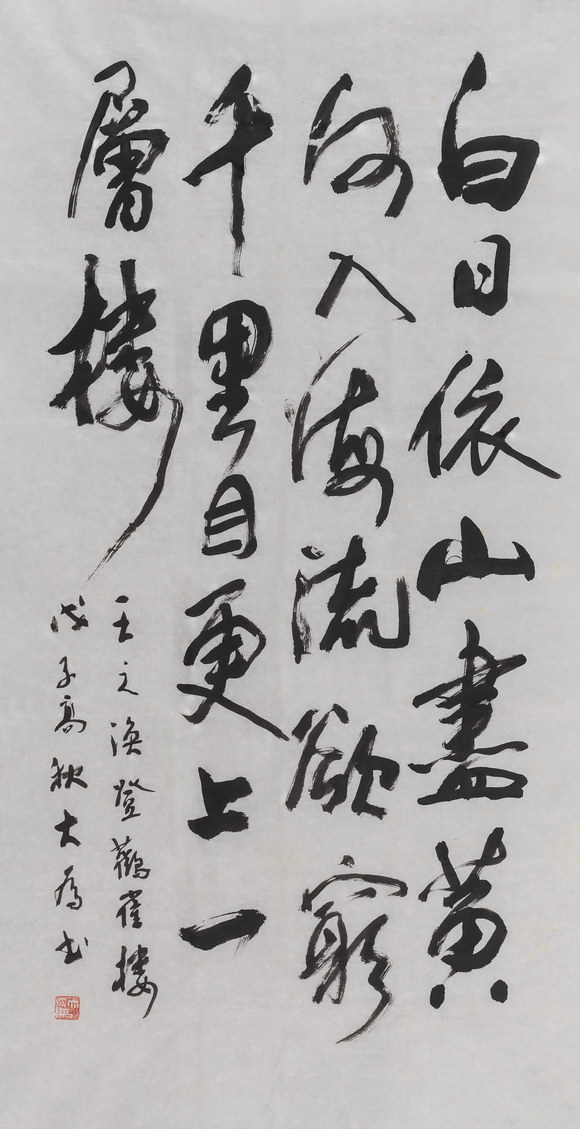 白日依山盡黃
河入海流欲窮
千里目更上一
層樓
王之渙登鸛雀樓
戊子高秋大為書